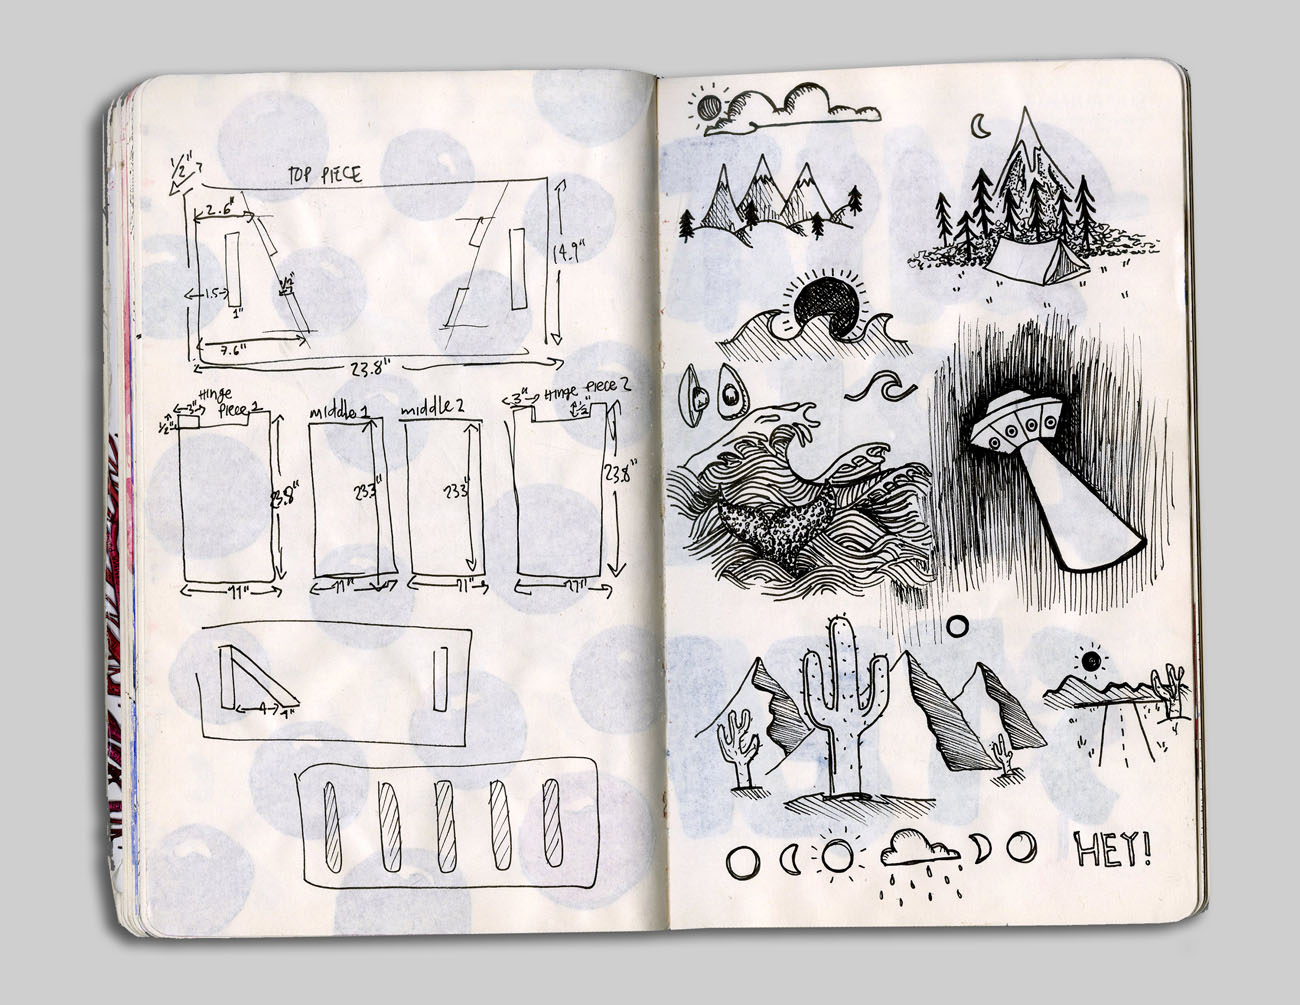 1/2"
TOP PIECE
2.6"
14.9"
1.5
1"
1/2"
7.6"
23.8"
Hinge
Piece 1
3"
1/2"
23.8"
11"
middle 1
23.3
11"
middle 2
23.3
11"
Hinge Piece 2
3"
1/2"
23.8"
11"
4"
HEY!